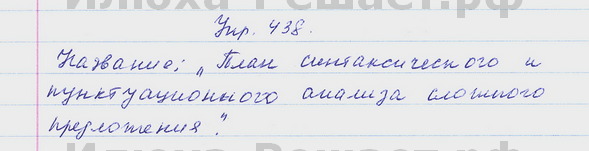 Илюха-Решает.рф
Упр. 438.
Название: „План синтаксического и
пунктуационного анализа сложного
предложения".
Илюха-Решает.рф